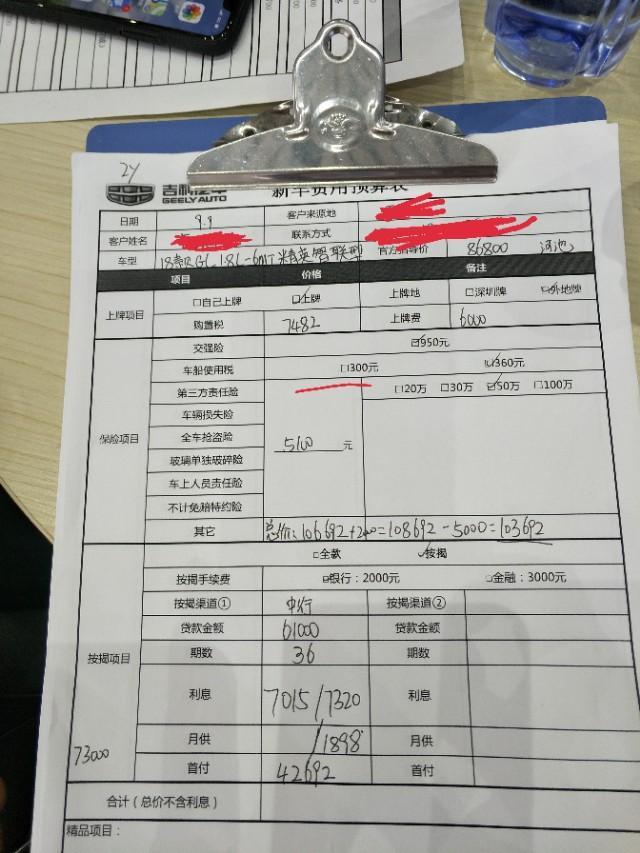 24
吉利汽车 新车费用预算表
GEELY AUTO
日期 9.9 客户来源地
客户姓名 联系方式
车型 18款RGL 1.8L-6MT精英智联型 官方指导价 86800 河池
项目 价格 备注
上牌项目 □自己上牌 □上牌 上牌地 □深圳牌 □外地牌
购置税 7482 上牌费 6000
保险项目 交强险 □950元
车船使用税 □300元 □360元
第三方责任险 □20万 □30万 □50万 □100万
车辆损失险
全车抢盗险 5100 元
玻璃单独破碎险
车上人员责任险
不计免赔特约险
其它 总价:106692+2000=108692-5000=103692
按揭项目 □全款 按揭
按揭手续费 □银行:2000元 □金融:3000元
按揭渠道① 中行 按揭渠道②
贷款金额 61000 贷款金额
期数 36 期数
利息 7015/7320 利息
月供 /1898 月供
73000 首付 42692 首付
合计(总价不含利息)
精品项目: